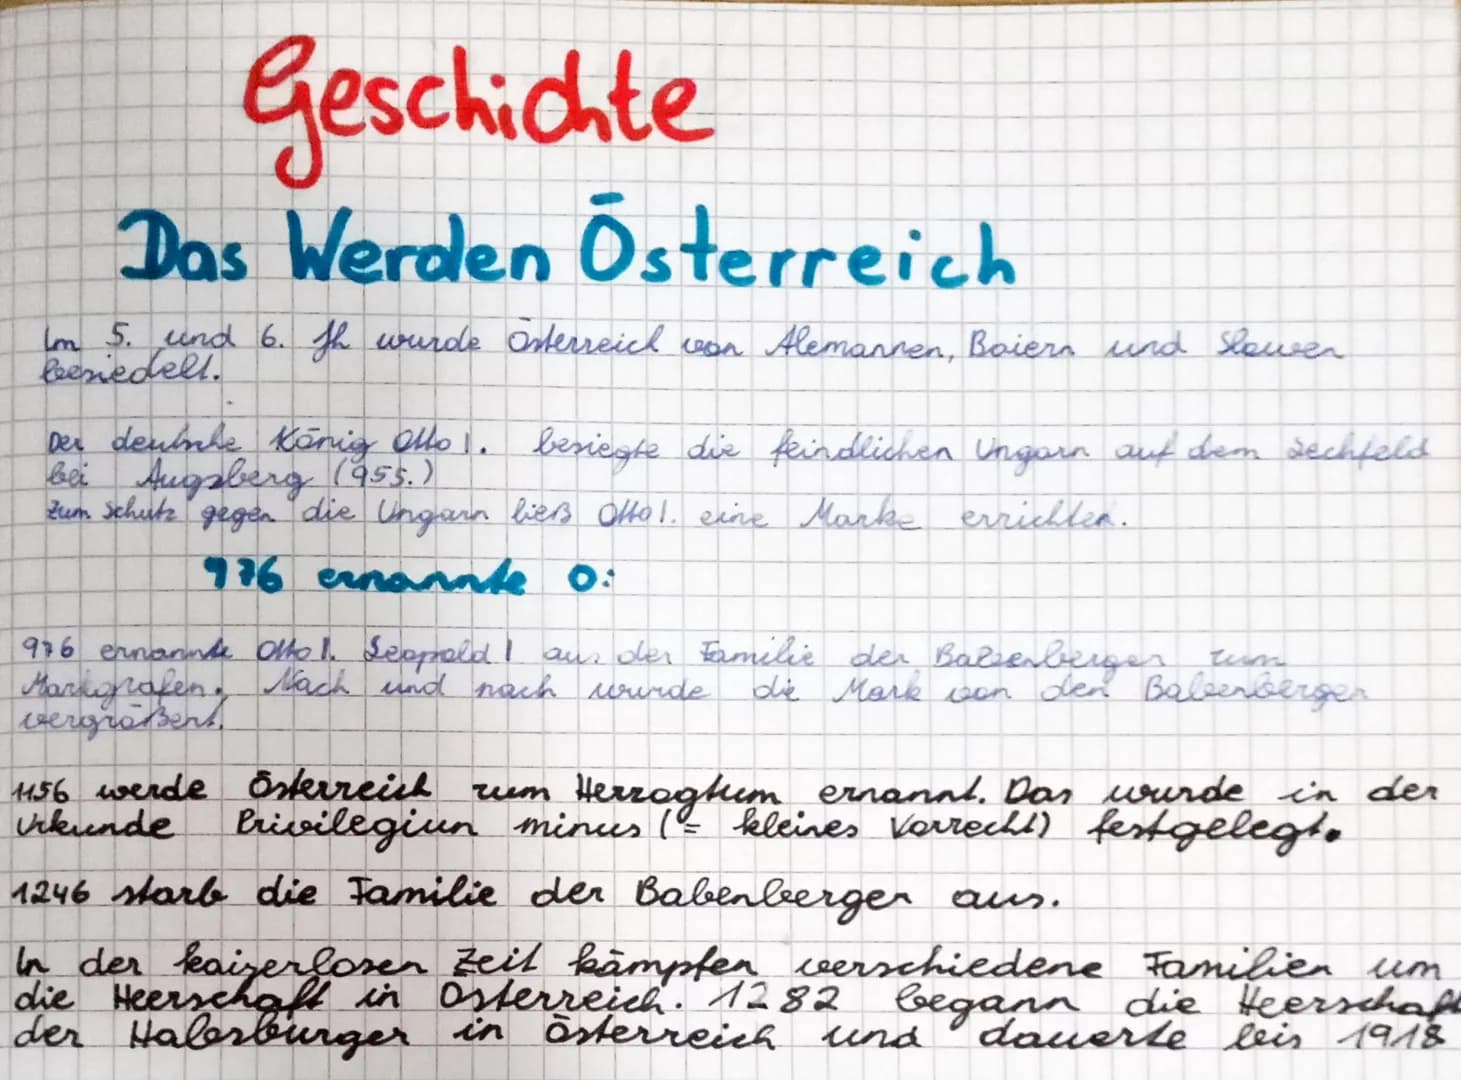 Geschichte
Das Werden Österreich
Im 5. und 6. Jh wurde Österreich von Alemannen, Baiern und Slawen
besiedelt.
Der deutsche König Otto I. besiegte die feindlichen Ungarn auf dem Lechfeld
bei Augsberg (955.)
Zum Schutz gegen die Ungarn ließ Otto I. eine Marke errichten.
976 ernannte O:
976 ernannte Otto I. Leopold I aus der Familie der Babenberger zum
Markgrafen. Nach und nach wurde die Mark von den Babenberger
vergrößert.
1156 werde Österreich zum Herzogtum ernannt. Das wurde in der
Urkunde Privilegiun minus (= kleines Vorrecht) festgelegt.
1246 starb die Familie der Babenberger aus.
In der kaiserlosen Zeit kämpfen verschiedene Familien um
die Heerschaft in Österreich. 1282 begann die Heerschaft
der Habsburger in Österreich und dauerte bis 1918